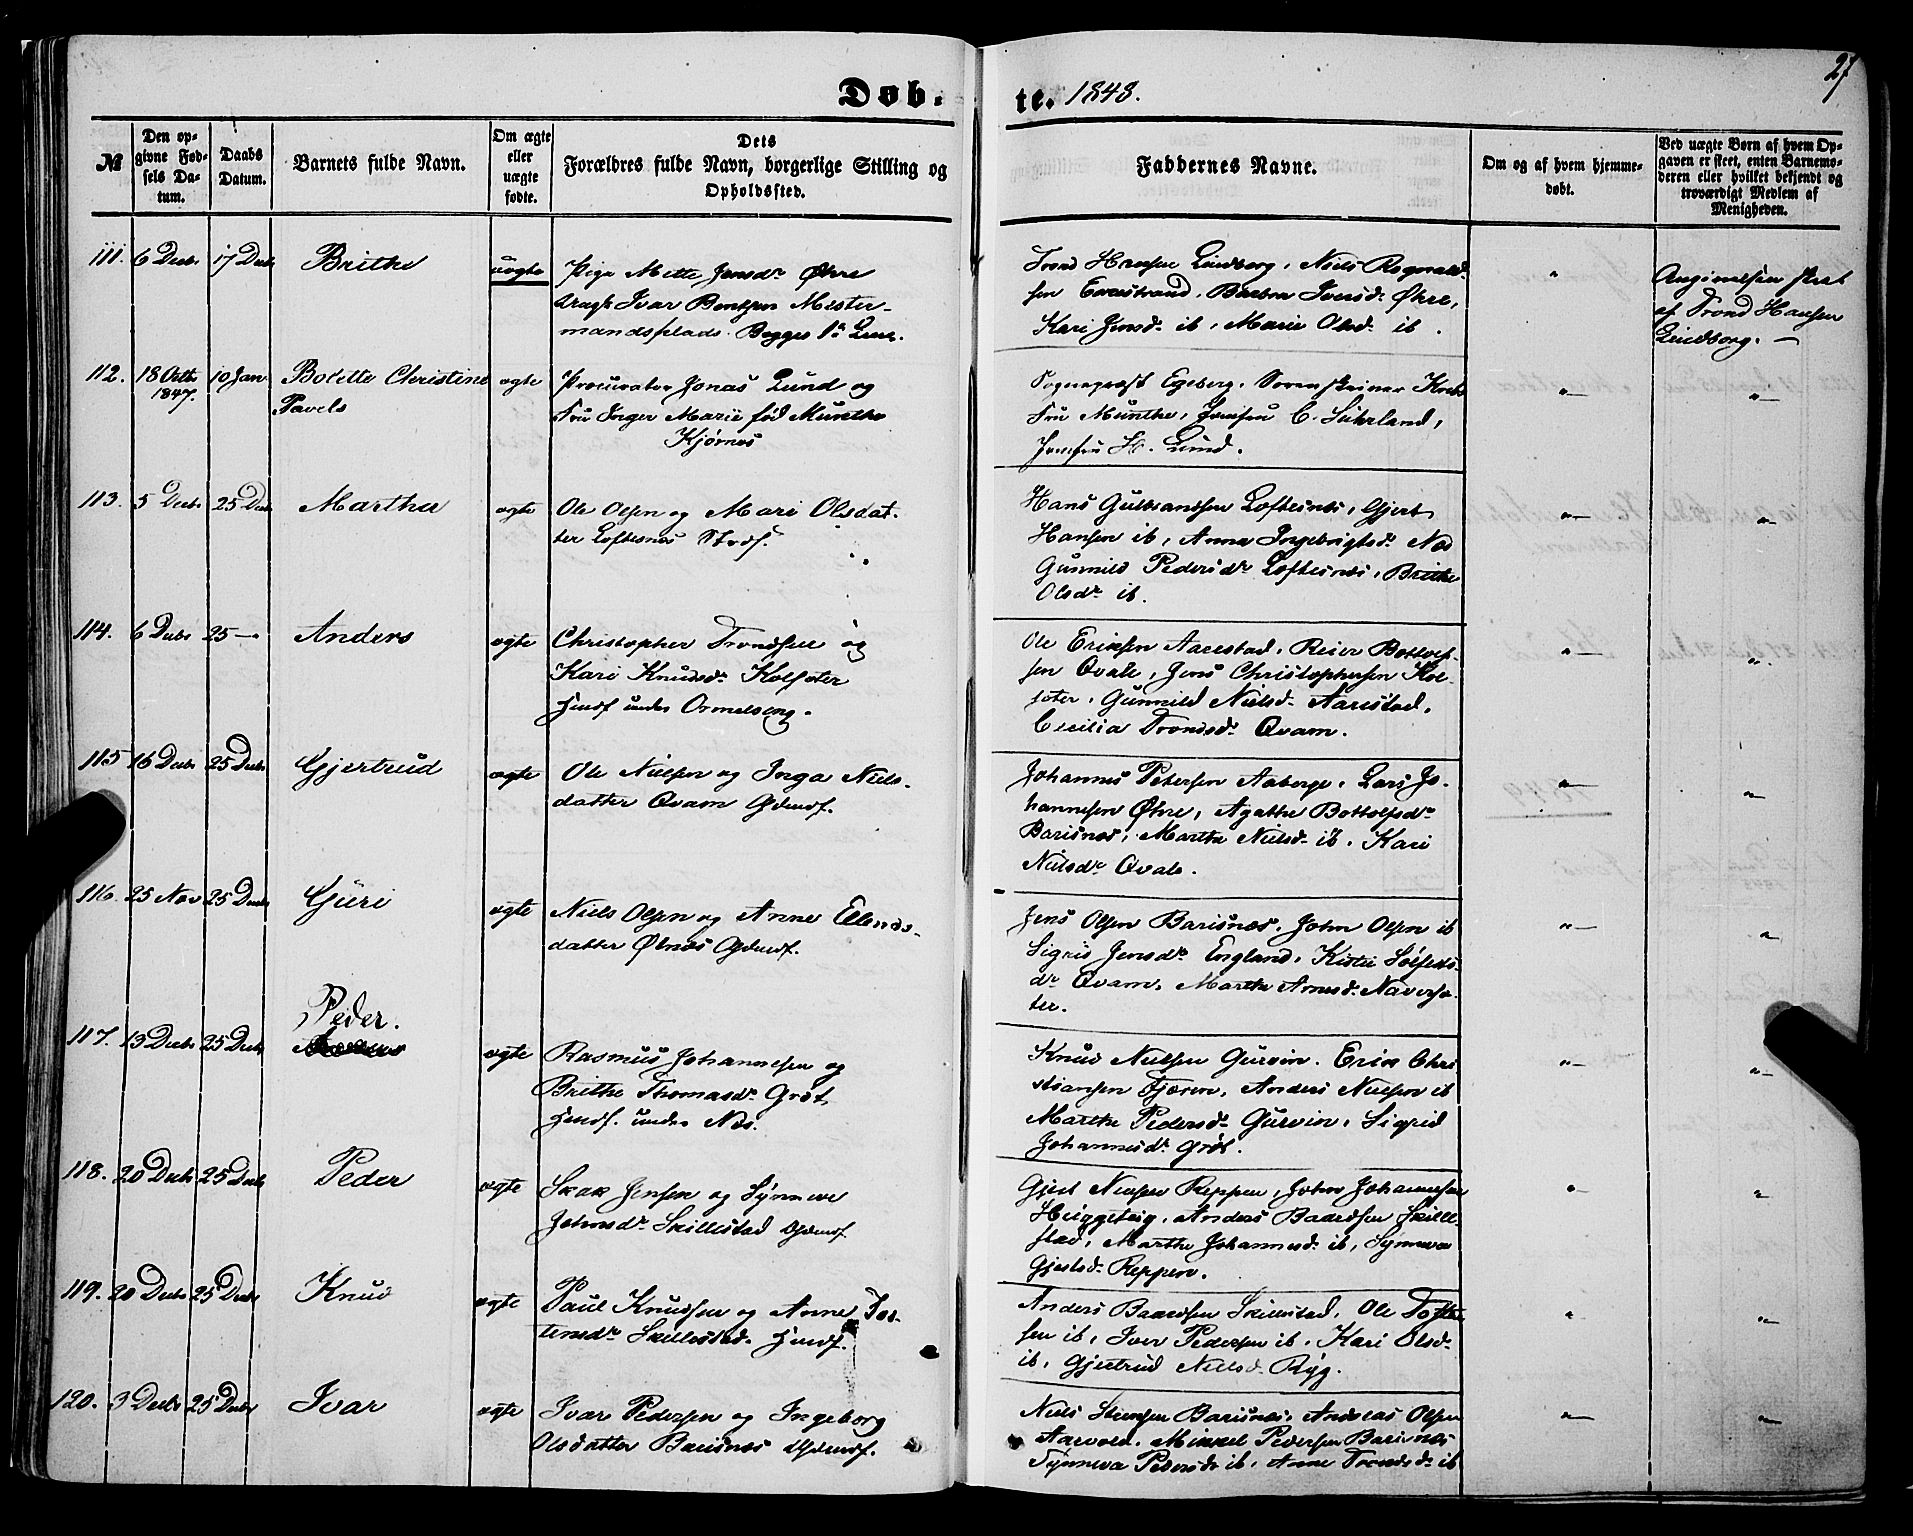 27
Døb-
te. 1848.
№
Den opgivne Fødsels Datum.
Daabs Datum.
Barnets fulde Navn.
Om ægte eller uægte fødte.
Dets Forældres fulde Navn, borgerlige Stilling og Opholdssted.
Faddernes Navne.
Om og af hvem hjemmedøbt.
Ved uægte Børn af hvem Opgaven er skeet, enten Barnemoderen eller hvilket bekjendt og troværdigt Medlem af Menigheden.
111. 6 Decb 17 Decb Brithe uægte
Pige Mette Jensdr Øhre
Ivar Bentsen Mister-
mandsplads. Begges
Trond Hansen Lindborg, Niels Rognald-
sen Barbra Iversdr Øhre,
Kari Jensdr ib, Marie Olsdr ib.
"
Angivelsen skeet
af Trond Hansen
Lindborg. —
112. 18 Octb 10 Jan Bolette Christine ægte
1847. Pavels
Procurator Jonas Lund og
Fru Inger Marie fød Munthe
Kjørnes
Sogneprest Egeberg, Sorenskriver Krebs
Fru Munthe, Jomfru C. Suhrland,
Jomfru H. Lund.
"— "—
113. 5 Decb 25 Decb Marthe ægte
Ole Olsen og Mari Olsdat-
ter Loftesnes Strds.
Hans Guldbrandsen Loftesnes, Gjert
Hansen ib, Anna Ingebrigtsdr Næs
Gunnild Pedersdr Loftesnes, Brithe
Olsdr ib.
"— "
114. 6 Decb 25 — Anders ægte
Christopher Trondsen og
Kari Knudsdr Kolsæter
Huusf under Ormelseng.
Ole Eriksen Aarestad, Reier Bottolf-
sen Qvale, Jens Christophersen Kol-
sæter, Gunnild Nielsdr Aarestad,
Cecilia Trondsdr Qvam.
"— "
115 16 Decb 25 Decb Gjertrud ægte
Ole Nielsen og Inga Niels-
datter Qvam Gdmdf.
Johannes Petersen Aaberge, Lars Jo-
hannesen Øhre, Agathe Bottolfsdr
Barsnes, Marthe Nielsdr ib, Kari
Nielsdr Qvale.
"— "
116. 25 Nov 25 Decb Guri ægte
Niels Olsen og Anne Ellends-
datter Ølnes Gdmdf.
Jens Olsen Barsnes, John Olsen ib
Sigrid Jensdr England,
dr Qvam, Marthe Arnesdr Naversæ-
ter.
"— "
117. 13 Decb 25 Decb Peder. ægte
Rasmus Johannesen og
Brithe Thomasdr Grøt
Huusf. under Næs.
Knud Nielsen Gurvin, Erik Chri-
stiansen Fjæren, Anders Nielsen ib
Marthe Pedersdr Gurvin, Sigrid
Johannesdr Grøt.
"— "—
118. 20 Decb 25 Decb Peder ægte
Skak Jensen og Synneve
Johnsdr Skillestad Gdmdf.
Gjest Nielsen Reppen, John Johannesen
Huggeteig, Anders Baardsen Skille-
stad, Marthe Johannesdr ib, Synneva
Gjestsdr Reppen.
"— "
119. 20 Decb 25 Decb Knud ægte
Paul Knudsen og Anne Jos-
tensdr Skillestad Huusf.
Anders Baardsen Skillestad, Ole Tosten-
sen ib, Iver Pedersen ib, Kari Olsdr
ib, Gjertrud Nielsdr Ryg.
" "
120. 3 Decb 25 Decb Ivar ægte
Ivar Pedersen og Ingeborg
Olsdatter Barsnes Gdmdf.
Niels Steensen Barsnes, Andreas Olsen
Aarvold, Mikkel Pedersen Barsnes
Synneva Pedersdr ib, Anne Trondsdr ib
"— "—